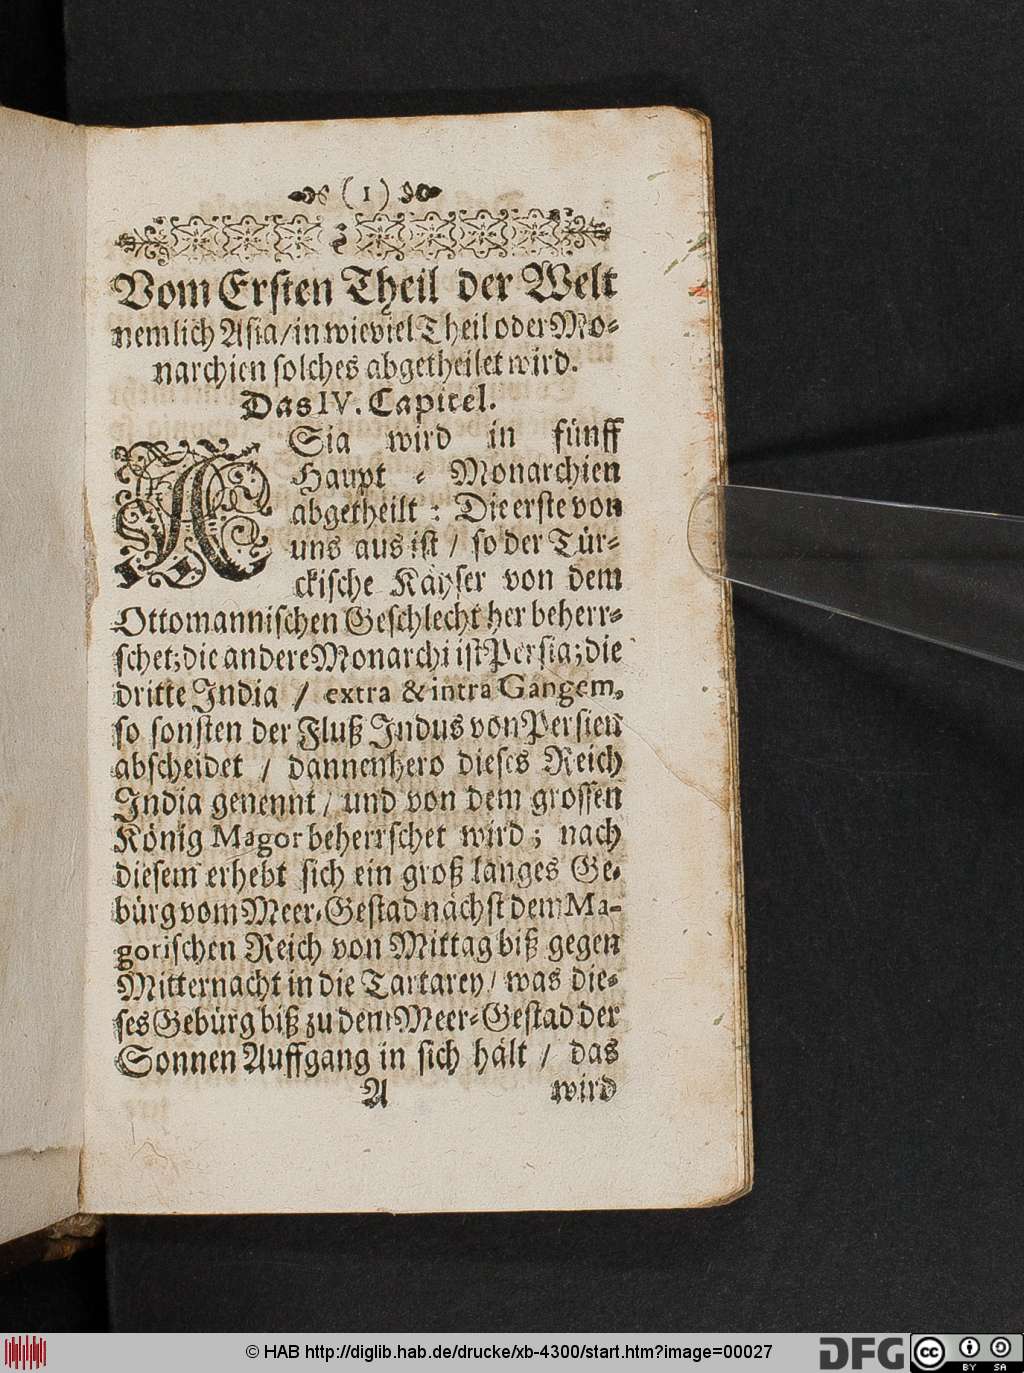 ( 1 )
Vom Ersten Theil der Welt
nemlich Asia / in wieviel Theil oder Mo-
narchien solches abgetheilet wird.
Das IV. Capitel.
ASia wird in fünff
Haupt - Monarchien
abgetheilt : Die erste von
uns aus ist / so der Tür-
ckische Käyser von dem
Ottomannischen Geschlecht her beherr-
schet; die andere Monarchi ist Persia; die
dritte India / extra & intra Gangem,
so sonsten der Fluß Indus von Persien
abscheidet / dannenhero dieses Reich
India genennt / und von dem grossen
König Magor beherrschet wird; nach
diesem erhebt sich ein groß langes Ge-
bürg vom Meer-Gestad nächst dem Ma-
gorischen Reich von Mittag biß gegen
Mitternacht in die Tartarey / was die-
ses Gebürg biß zu dem Meer-Gestad der
Sonnen Auffgang in sich hält / das
A wird
© HAB http://diglib.hab.de/drucke/xb-4300/start.htm?image=00027
DFG
cc BY SA